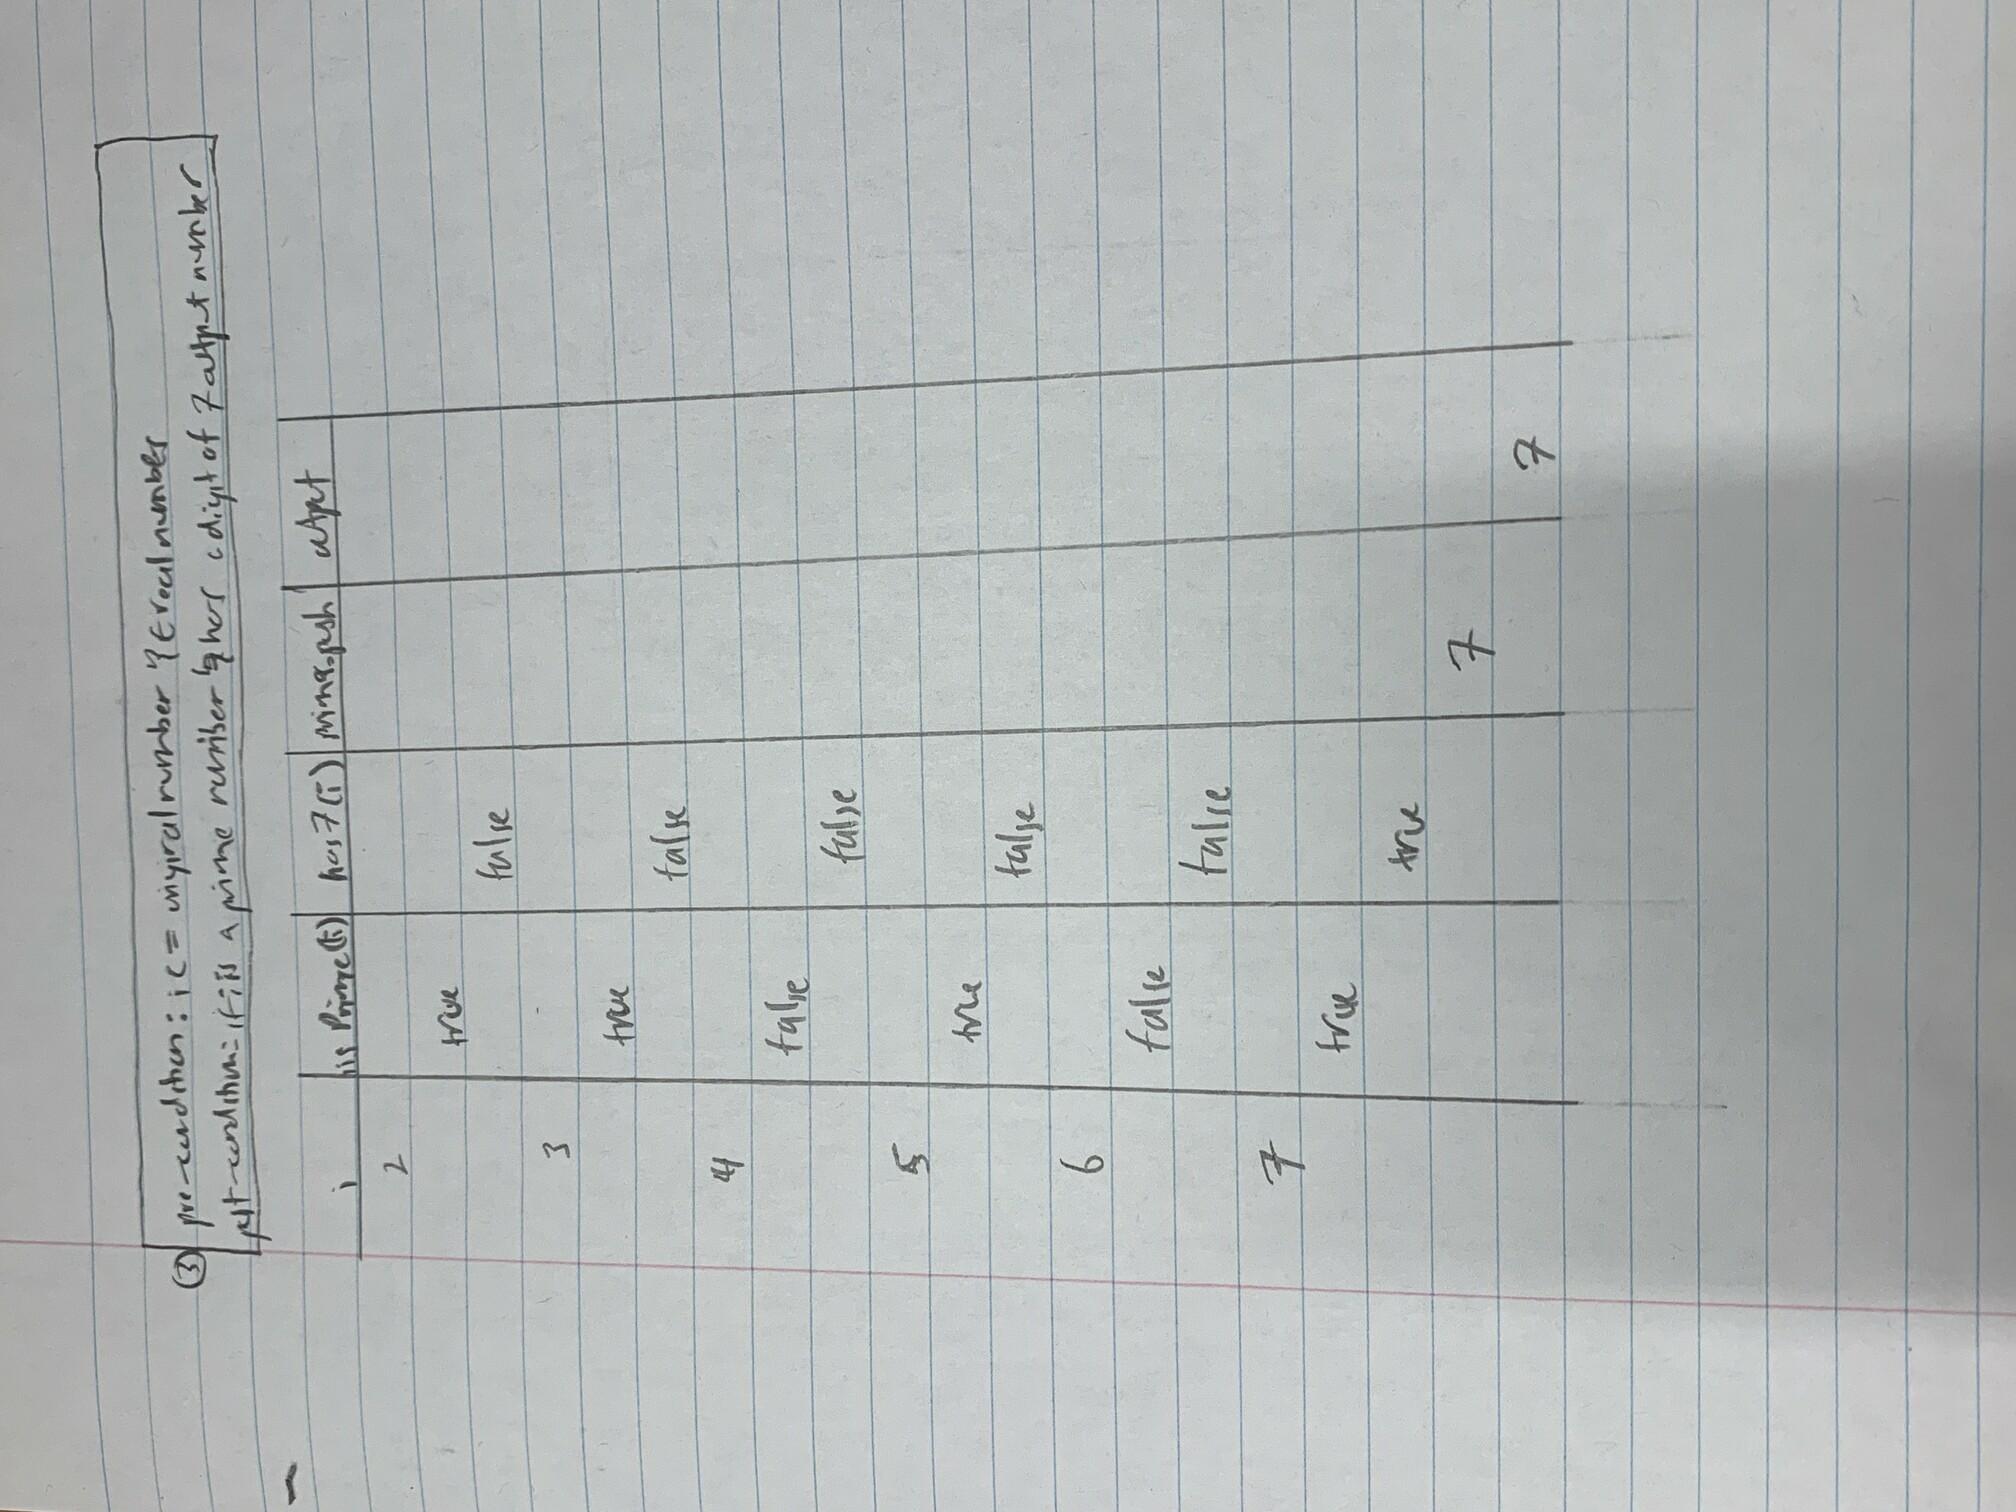 ③ pre-condition: i <= original number & ∈ real number
post-condition: if i is a prime number & has a digit of 7 output number
i | isPrime(i) | has7(i) | primes.push | output
2
true
false
3
true
false
4
false
false
5
true
false
6
false
false
7
true
true
7
7